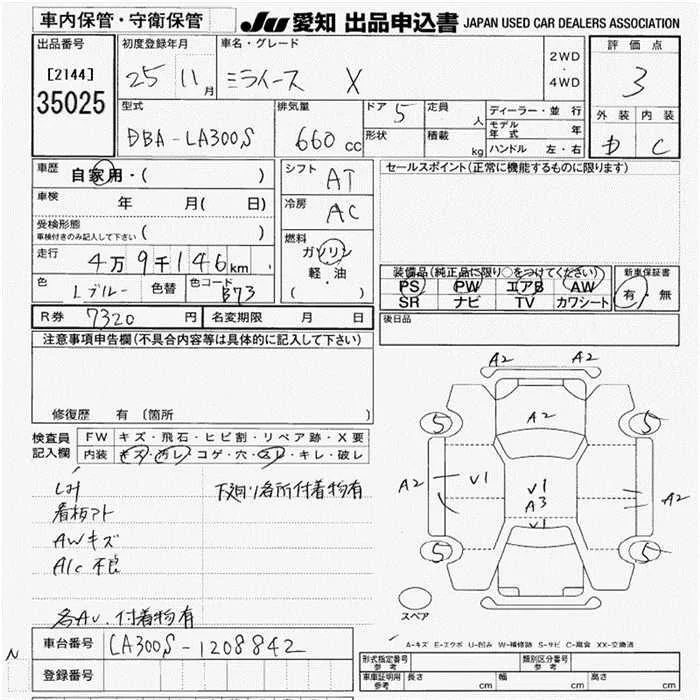 車内保管・守衛保管
JU 愛知 出品申込書 JAPAN USED CAR DEALERS ASSOCIATION
出品番号
[2144]
35025
初度登録年月
25 11月
車名・グレード
ミライース X
2WD
・
4WD
評価点
3
型式
DBA-LA300S
排気量
660cc
ドア 5
定員 人
形状
積載 kg
ディーラー・並行
モデル年式 年
ハンドル 左・右
外装 内装
D C
車歴
自家用・( )
車検
年 月( 日)
受検形態
車検付きのみ記入して下さい ( )
走行
4万9千146km
色
Lブルー
色替
色コード
B73
シフト
AT
冷房
AC
燃料
ガソリン
軽・油
( )
セールスポイント(正常に機能するものに限ります)
装備品(純正品に限り○をつけてください)
PS PW エアB AW
SR ナビ TV カワシート
新車保証書
有・無
R券 7320 円
名変期限 月 日
後日品
注意事項申告欄(不具合内容等は具体的に記入して下さい)
修復歴 有 〔箇所 〕
検査員記入欄
FW キズ・飛石・ヒビ割・リペア跡・X要
内装 キズ・汚レ・コゲ・穴・スレ・キレ・破レ
下廻り各所付着物有
看板アト
AWキズ
A/c 不良
付着物有
A2 A2
A2
5 5
A2 V1
V1
A3
V1
A2
5 5
スペア
A-キズ E-エクボ U-凹み W-補修跡 S-サビ C-腐食 XX-交換済
N
車台番号 LA300S-1208842
登録番号
形式指定番号 参考
類別区分番号 参考
車庫証明用 参考
長さ cm
幅 cm
高さ cm